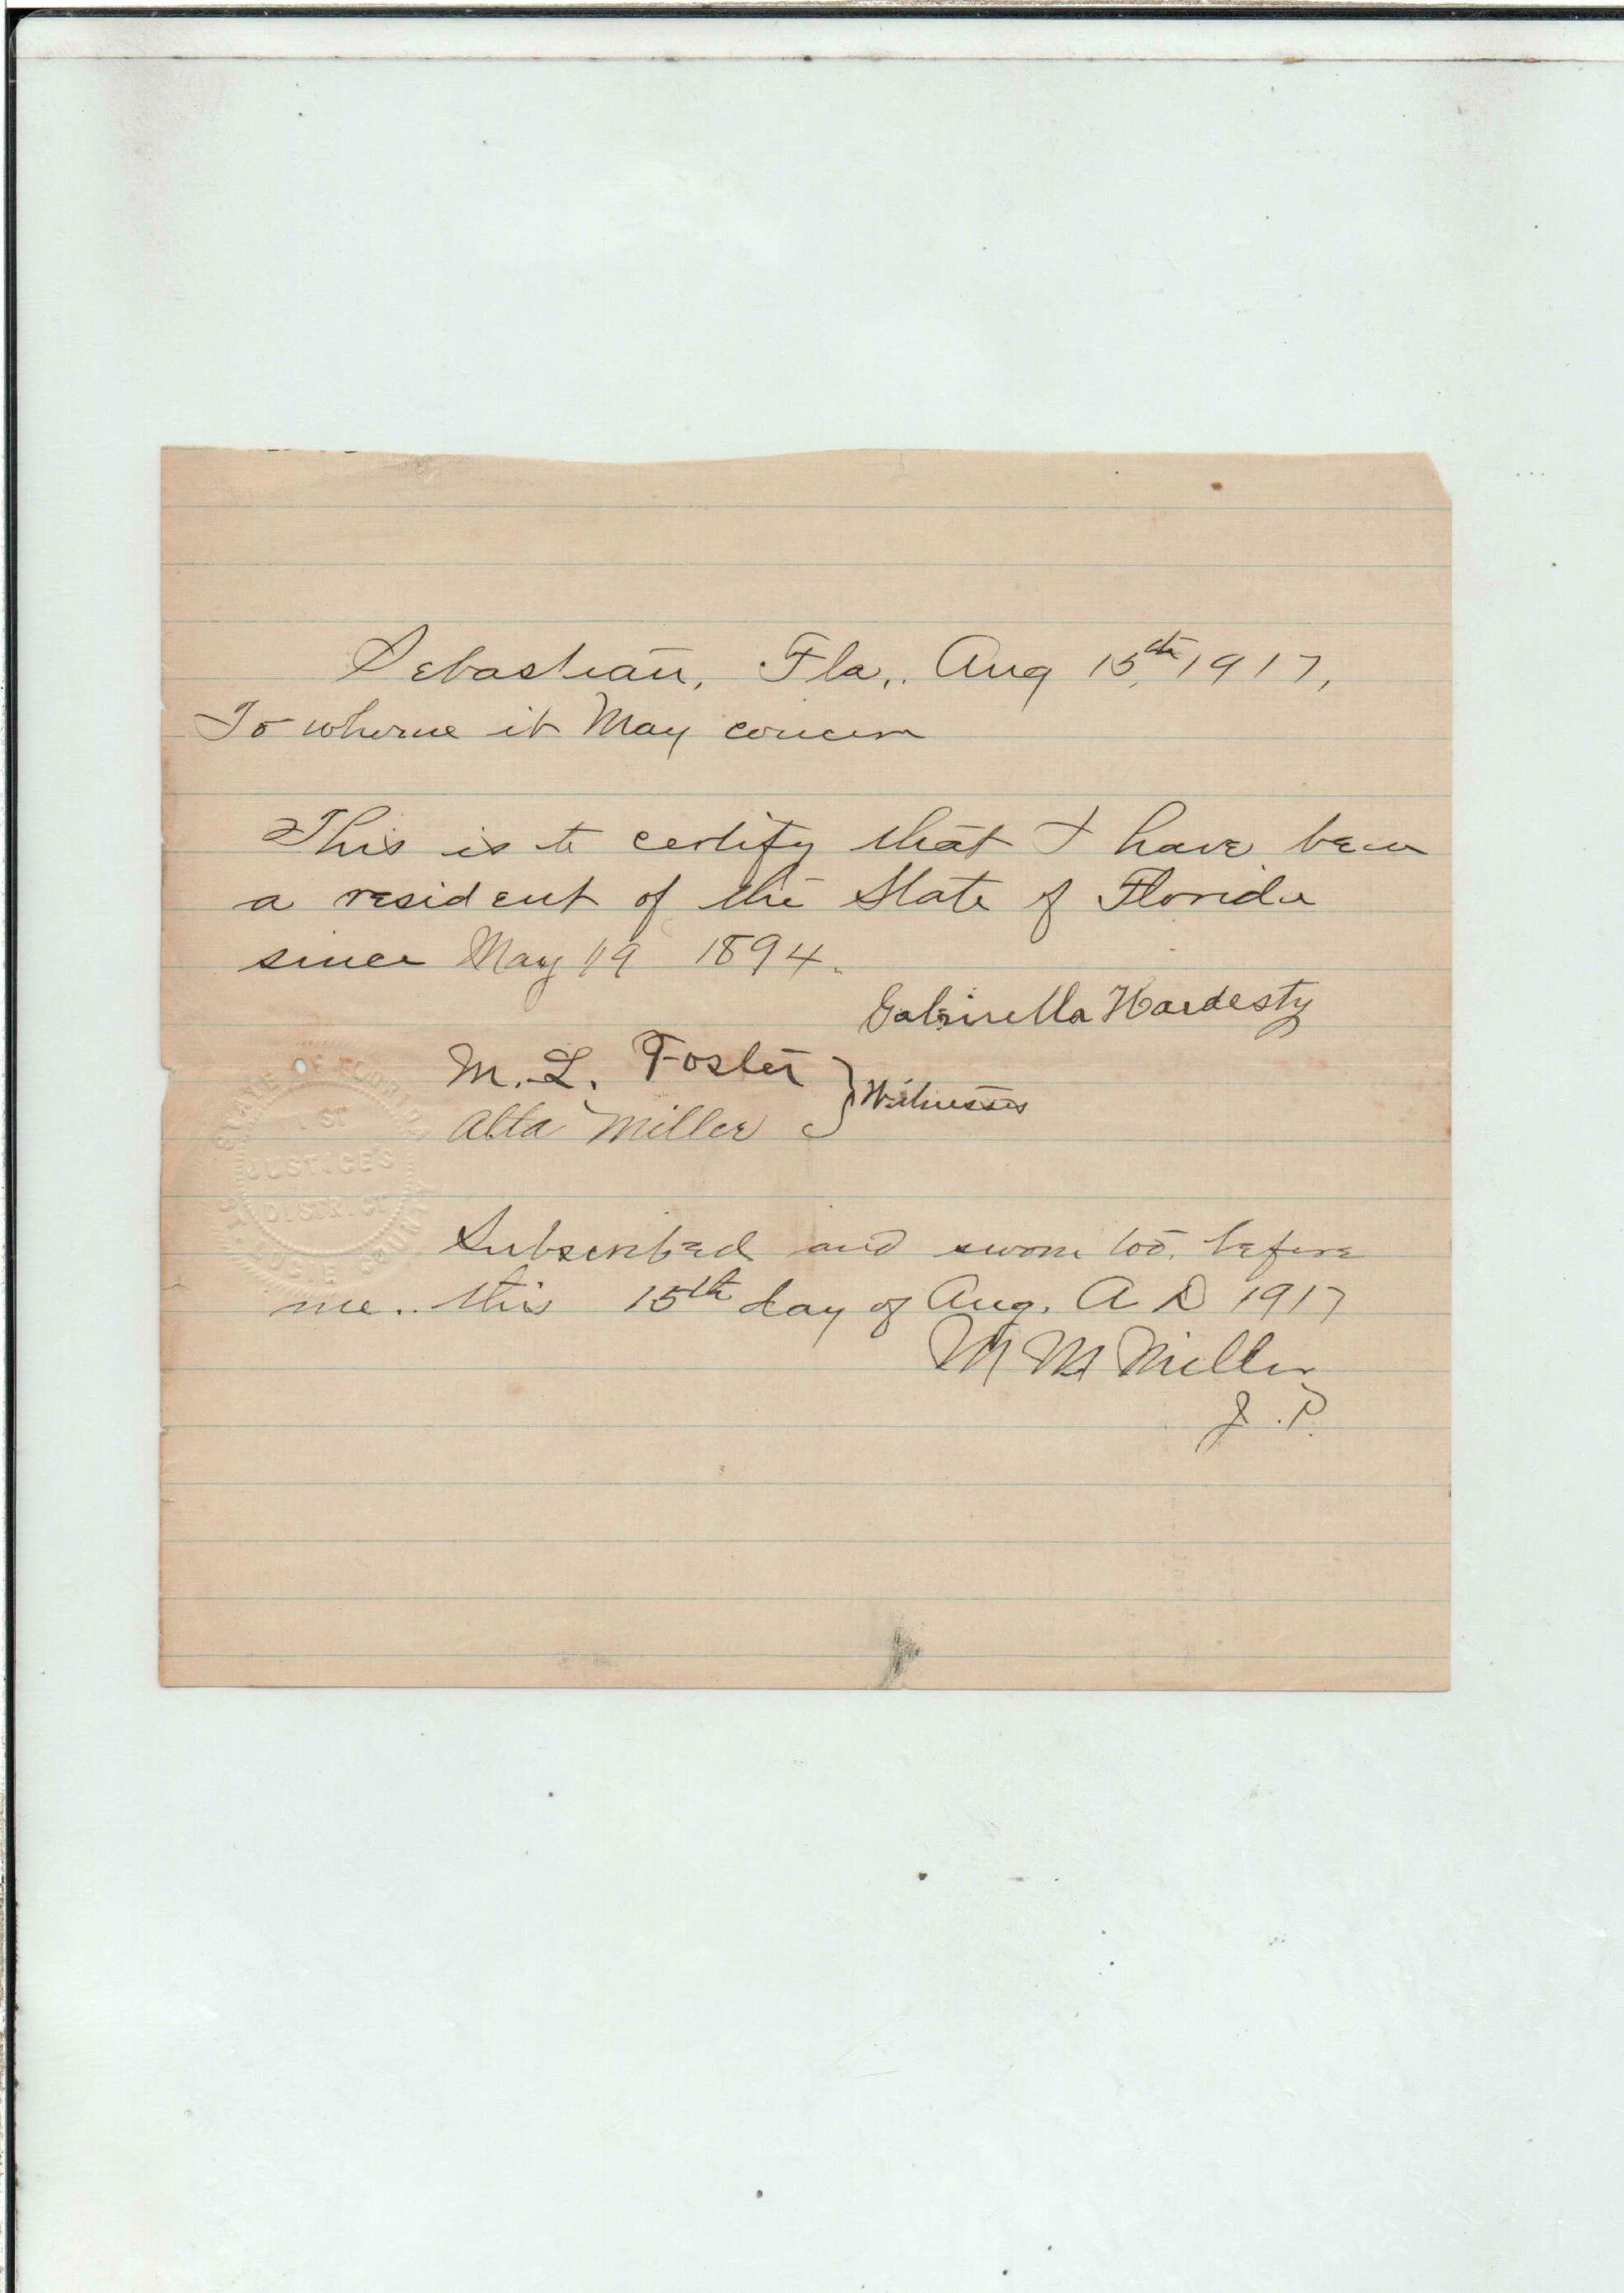 Sebastian, Fla., Aug 15th, 1917,
To whome it May concern
This is to certify that I have been
a resident of the State of Florida
since May 19 1894.
Gabriella Hardesty
M. L. Foster
Alta Miller } Witnesses
STATE OF FLORIDA
1 ST
JUSTICE'S
DISTRICT
ST. LUCIE COUNTY
Subscribed and sworn too. before
me.. this 15th day of Aug. A D 1917
M M Miller
J. P.